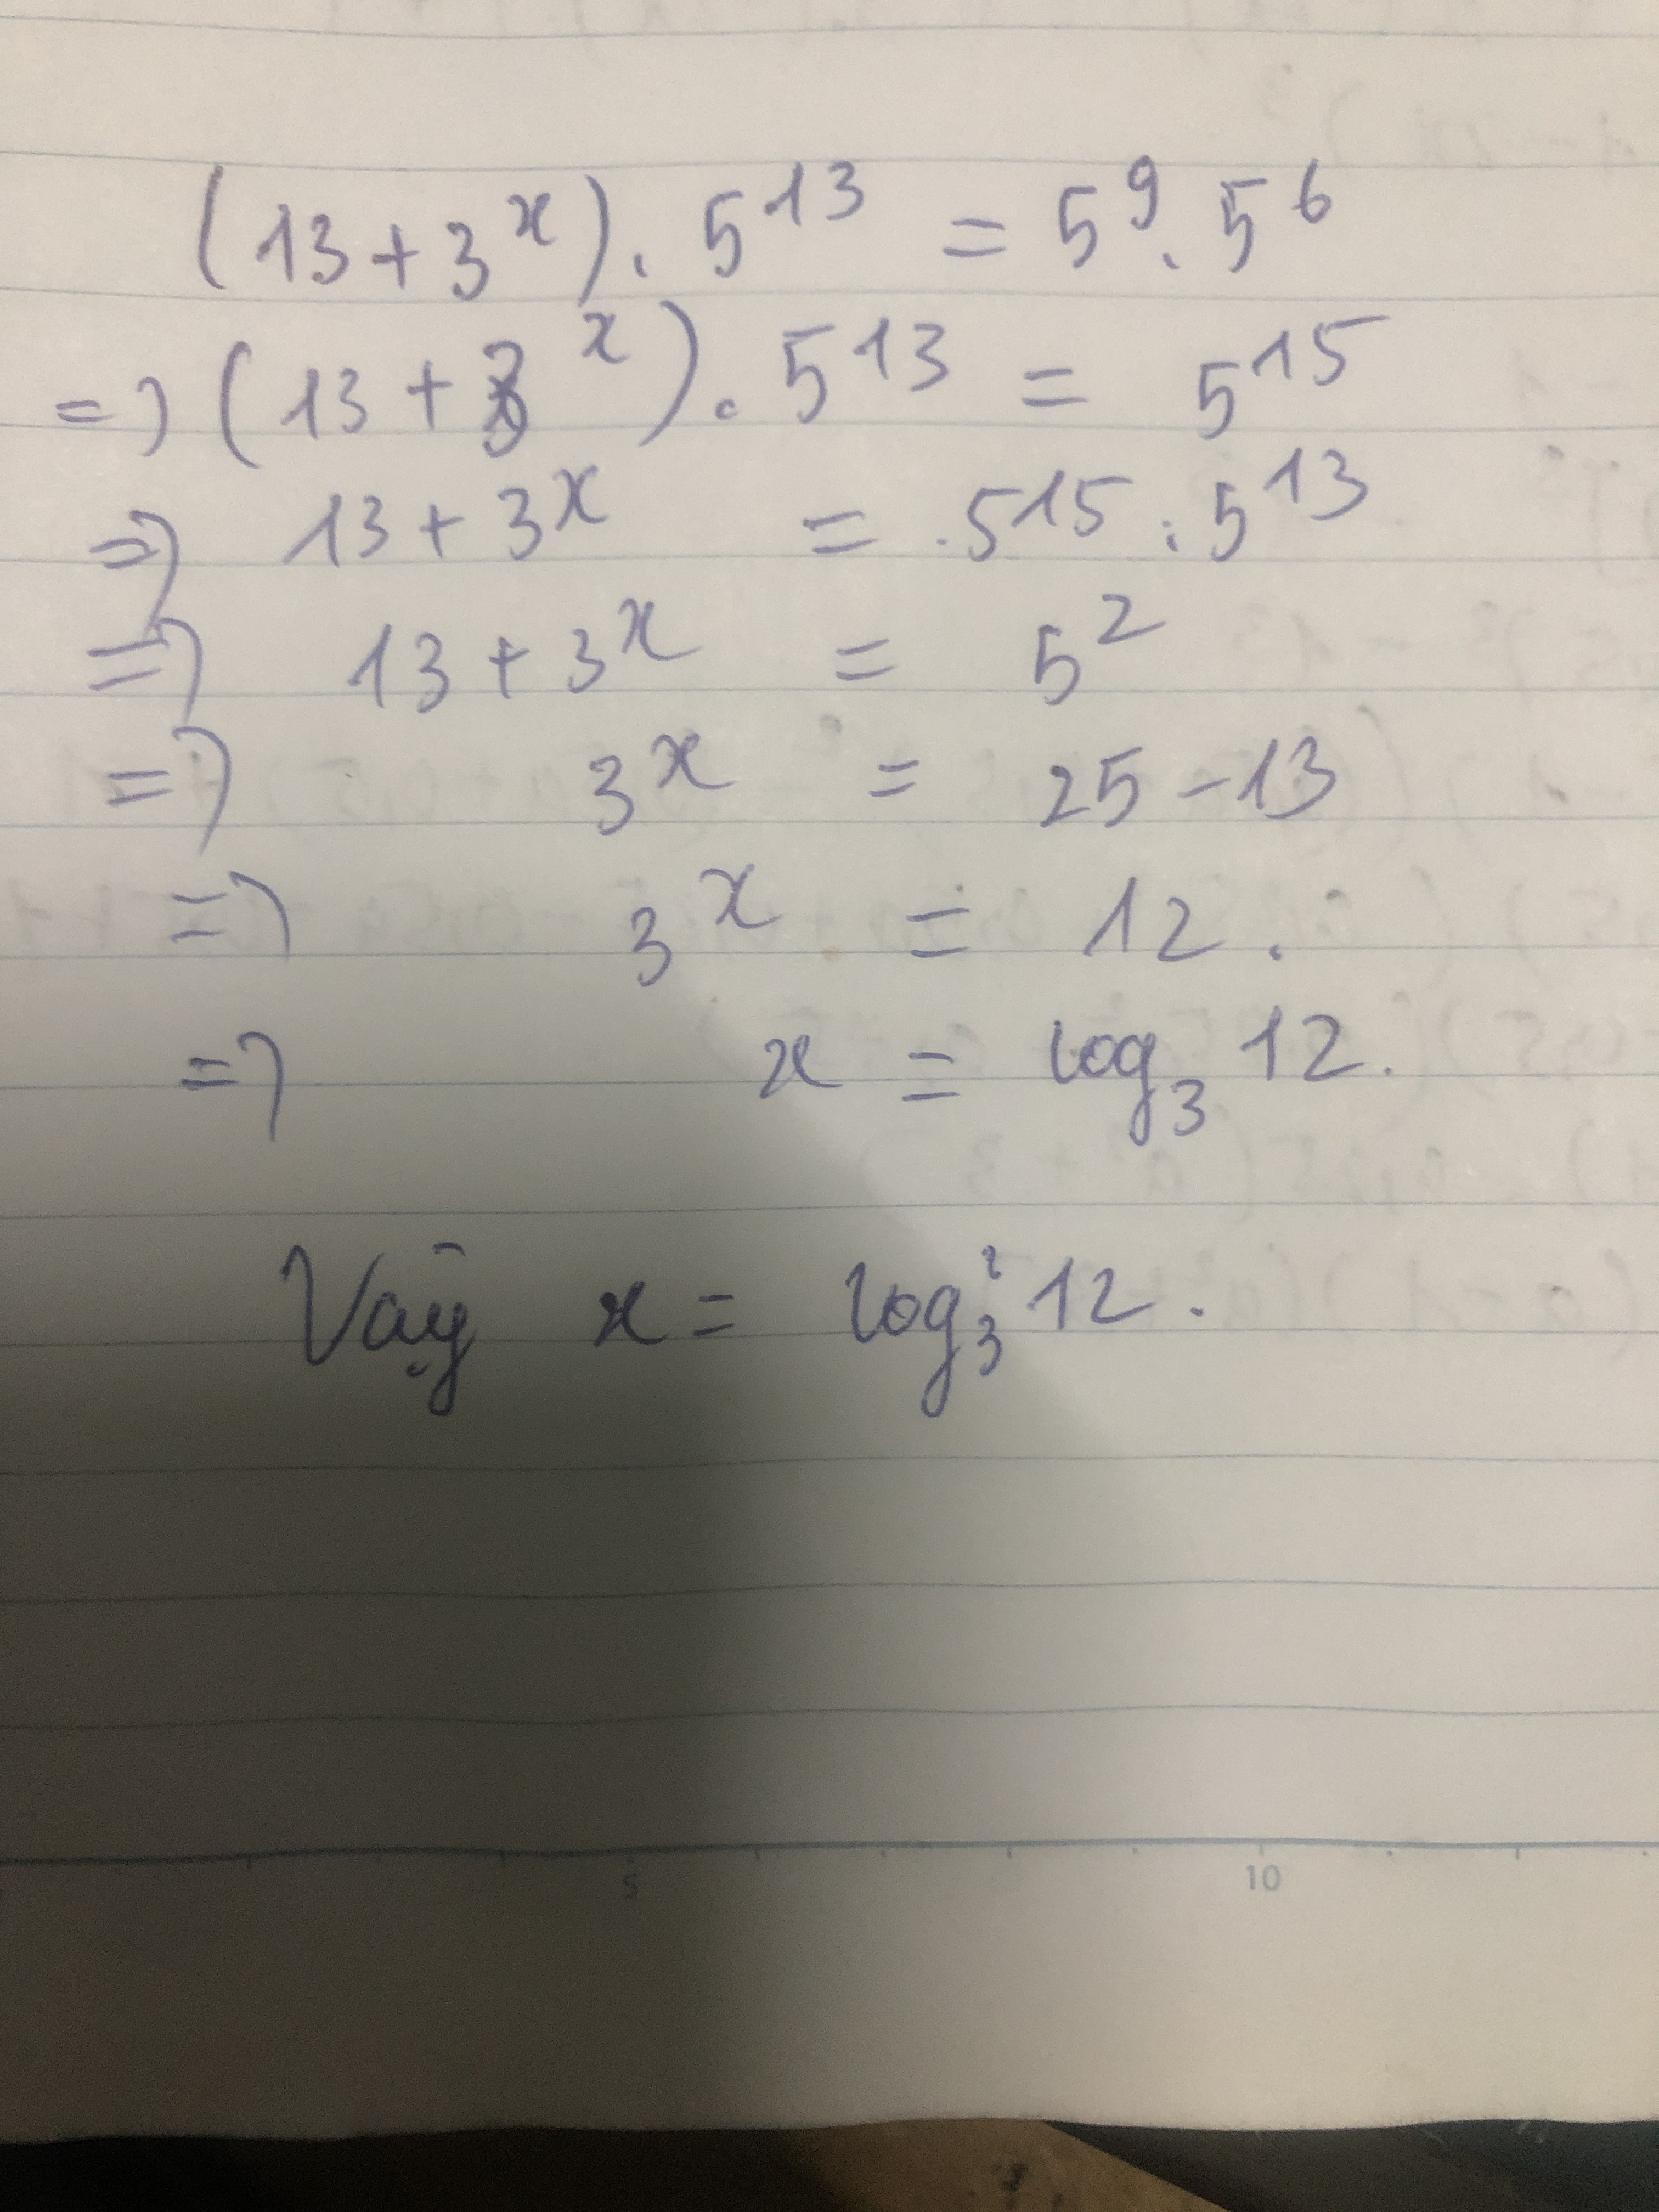 (13 + 3^x) . 5^13 = 5^9 . 5^6
=> (13 + 3^x) . 5^13 = 5^15
=> 13 + 3^x = 5^15 : 5^13
=> 13 + 3^x = 5^2
=> 3^x = 25 - 13
=> 3^x = 12 .
=> x = log_3 12 .
Vậy x = log_3 12 .
5 10